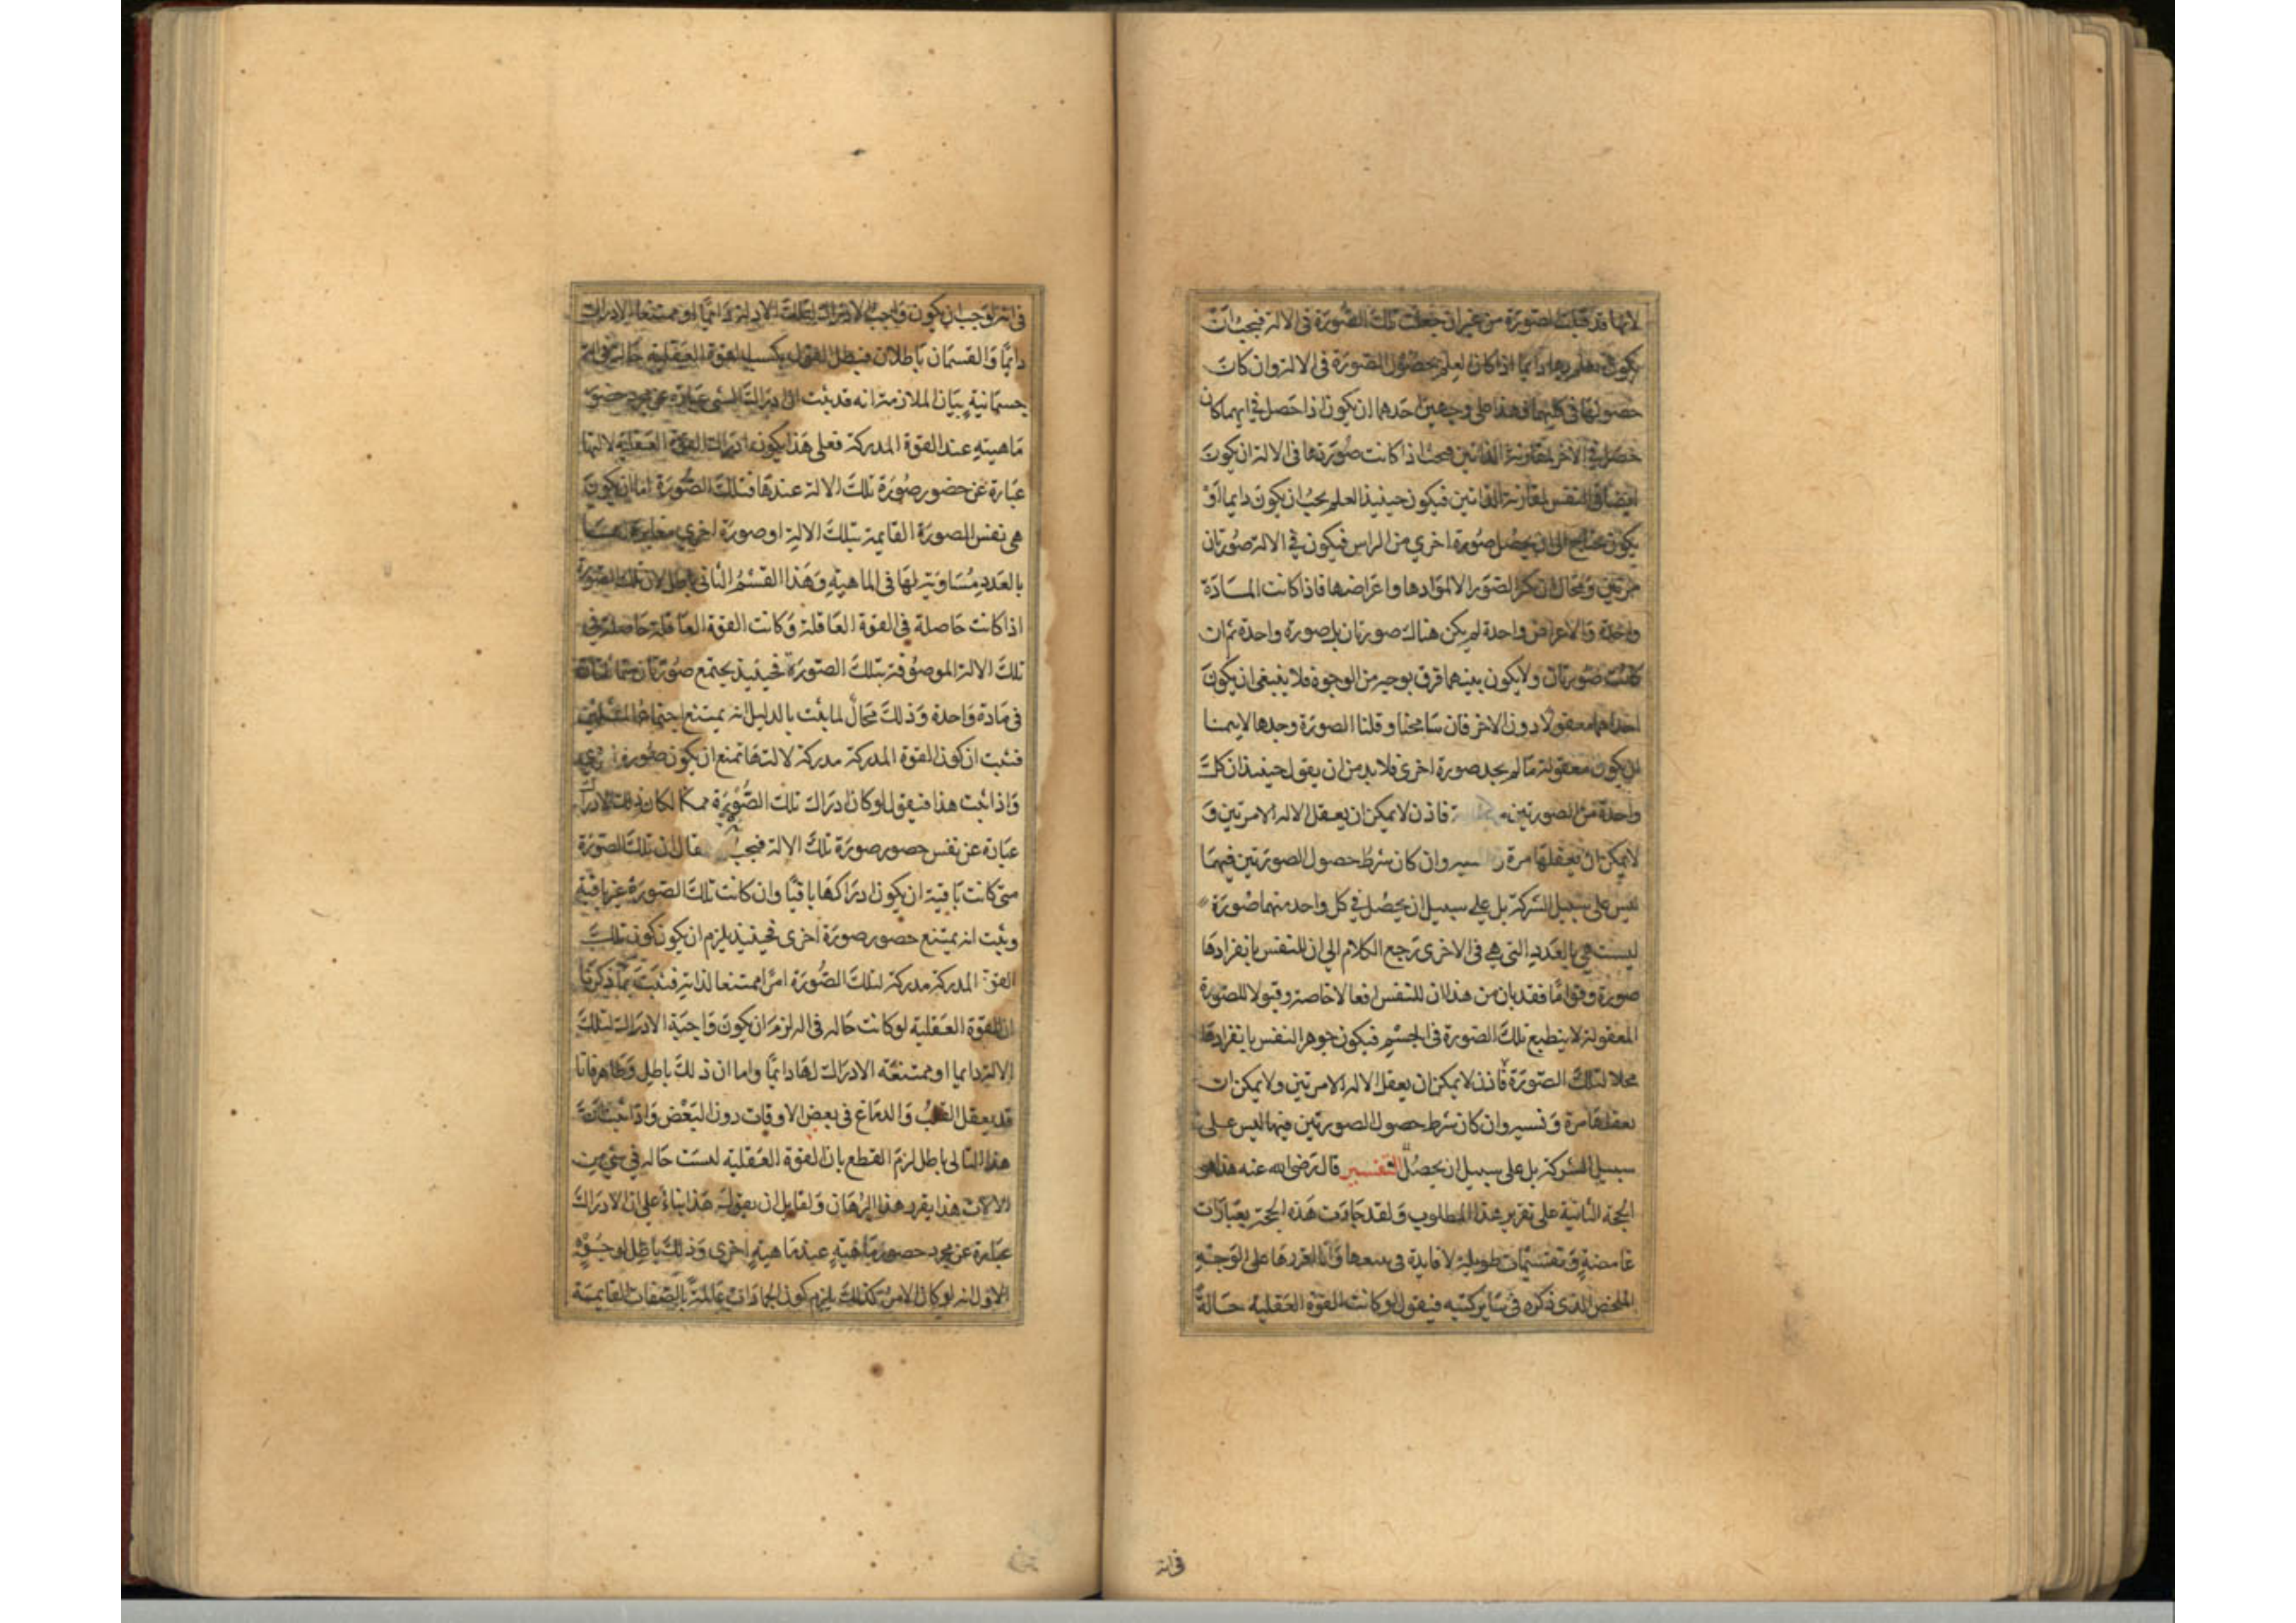 لانها قد قبلت الصورة من غير ان جعلت تلك الصورة في الالة فيجب ان
يكون يعلم بها دايما اذا كان العلم بحصول الصورة في الالة وان كان
حصولها في كليهما فهذا على وجهين احدهما ان يكون اذا حصل في ايهما كان
حصل في الاخر لمقارنة الذاتين فيجب اذا كانت صورتها في الالة ان يكون
ايضا في النفس لمقارنة الذاتين فيكون حينيذ العلم يجب ان يكون دايما او
يكون يحتاج الى ان يحصل صورة اخري من الراس فيكون في الالة صورتان
مرتين ومحال ان تكثر الصور الا لموادها واعراضها فاذا كانت المادة
واحدة والاعراض واحدة لم يكن هناك صورتان بل صورة واحدة ثم ان
كانت صورتان ولا يكون بينهما فرق بوجه من الوجوه فلا ينبغي ان يكون
احداهما معقولا دون الاخر فان سامحنا وقلنا الصورة وحدها لا
ان يكون معقولة ما لم يجد صورة اخرى فلا بد من ان يقول حينيذ ان كل
واحدة من الصورتين فاذن لا يمكن ان يعقل الاله الا مرتين و
لا يمكن ان يعقلها مرة وان كان شرط حصول الصورتين فيهما
ليس على سبيل الشركة بل على سبيل ان يحصل في كل واحد منهما صورة
ليست هي بالعدد التي هي في الاخرى رجع الكلام الي ان للنفس بانفرادها
صورة وقواما فقد بان من هذا ان للنفس افعالا خاصة وقبولا للصورة
المعقولة لا ينطبع تلك الصورة في الجسم فيكون جوهر النفس بانفرادها
محلا لتلك الصورة فاذن لا يمكن ان يعقل الاله الا مرتين ولا يمكن ان
يعقلها مرة وان كان شرط حصول الصورتين فيها ليس على
سبيل الشركة بل على سبيل ان يحصل التفسير قال رضي الله عنه هذا هو
الحجة الثانية على تقرير هذا المطلوب ولقد جاءت هذه الحجة بعبارات
غامضة وتقسيمات طويلة لا فايدة في وانا اقررها على الوجه
الملخص الذي ذكره في ساير كتبه فيقول لو كانت القوة العقلية حالة
في اله
في اله لوجب ان يكون واجب الادراك لتلك الاله دايما او ممتنعة الادراك
دايما والقسمان باطلان فبطل القول القوة العقلية حالة في اله
جسمانية بيان الملازمة انه قد ثبت ان ادراك الشي عبارة عن مجرد حضور
ماهيته عند القوة المدركة فعلى هذا يكون ادراك القوة العقلية لالتها
عبارة عن حضور صورة تلك الالة عندها فتلك الصورة اما ان يكون
هي نفس الصورة القايمة بتلك الالة او صورة اخري مغايرة لها
بالعدد مساوية لها في الماهية وهذا القسم الثاني باطل لان تلك الصورة
اذا كانت حاصلة في القوة العاقلة وكانت القوة العاقلة حاصلة في
تلك الالة الموصوفة بتلك الصورة فحينيذ يجتمع صورتان متماثلتان
في مادة واحدة وذلك محال لما ثبت بالدليل انه يمتنع اجتماع المثلين
فثبت ان كون القوة المدركة مدركة لالتها تمنع ان يكون صورة اخري
واذا ثبت هذا فيقول لو كان ادراك تلك الصورة ممكنا لكان ذلك الادراك
عبارة عن نفس حصور صورة تلك الالة فيجب يقال ان تلك الصورة
متى كانت باقية ان يكون ادراكها باقيا وان كانت تلك الصورة غير باقية
وثبت انه يمتنع حصور صورة اخرى فحينيذ يلزم ان يكون كون تلك
القوة المدركة مدركة لتلك الصورة امرا ممتنعا لذاته فثبت بما ذكرنا
ان القوة العقلية لو كانت حاله في اله لزم ان يكون واجبة الادراك لتلك
الالة دايما او ممتنعة الادراك لها دايما واما ان ذلك باطل وظاهر فانا
قد يعقل القلب والدماغ في بعض الاوقات دون البعض واذا ثبت ان
هذا التالي باطل لزم القطع بان القوة العقلية ليست حاله في شي من
الالات هذا تقرير هذا البرهان ولقايل ان يقول هذا بناء على ان الادراك
عبارة عن مجرد حصور ماهية عند ماهية اخرى وذلك باطل لوجوه
الاول انه لو كان الامر كذلك يلزم كون الجمادات عالمة بالصفات القايمة